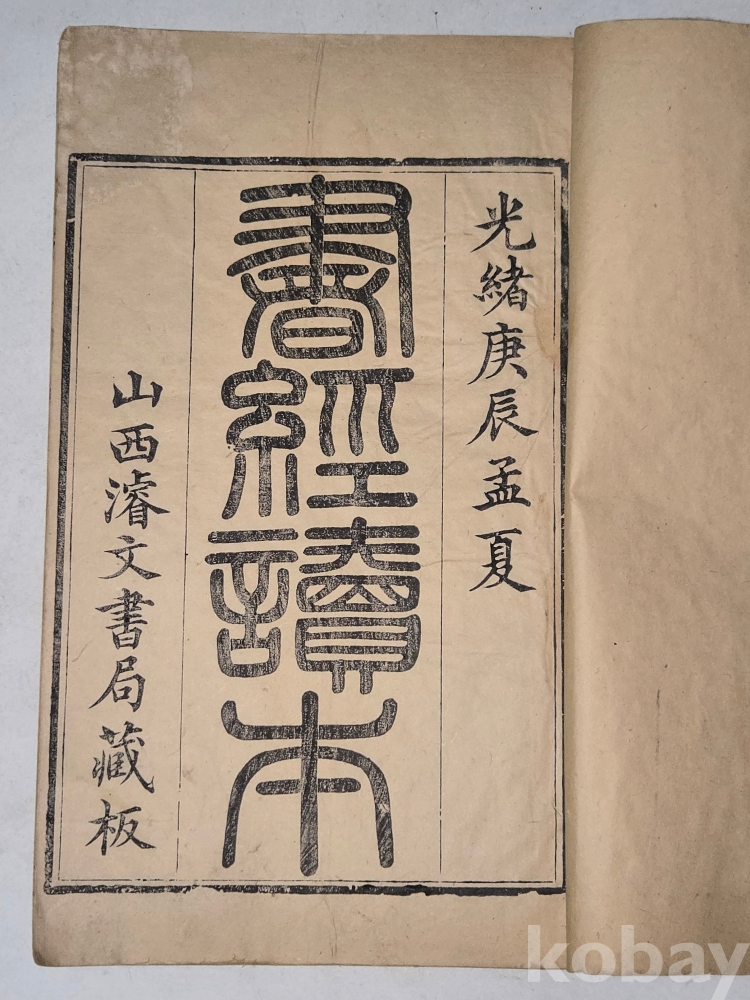 光緒庚辰孟夏
書經讀本
山西濬文書局藏板
kobay